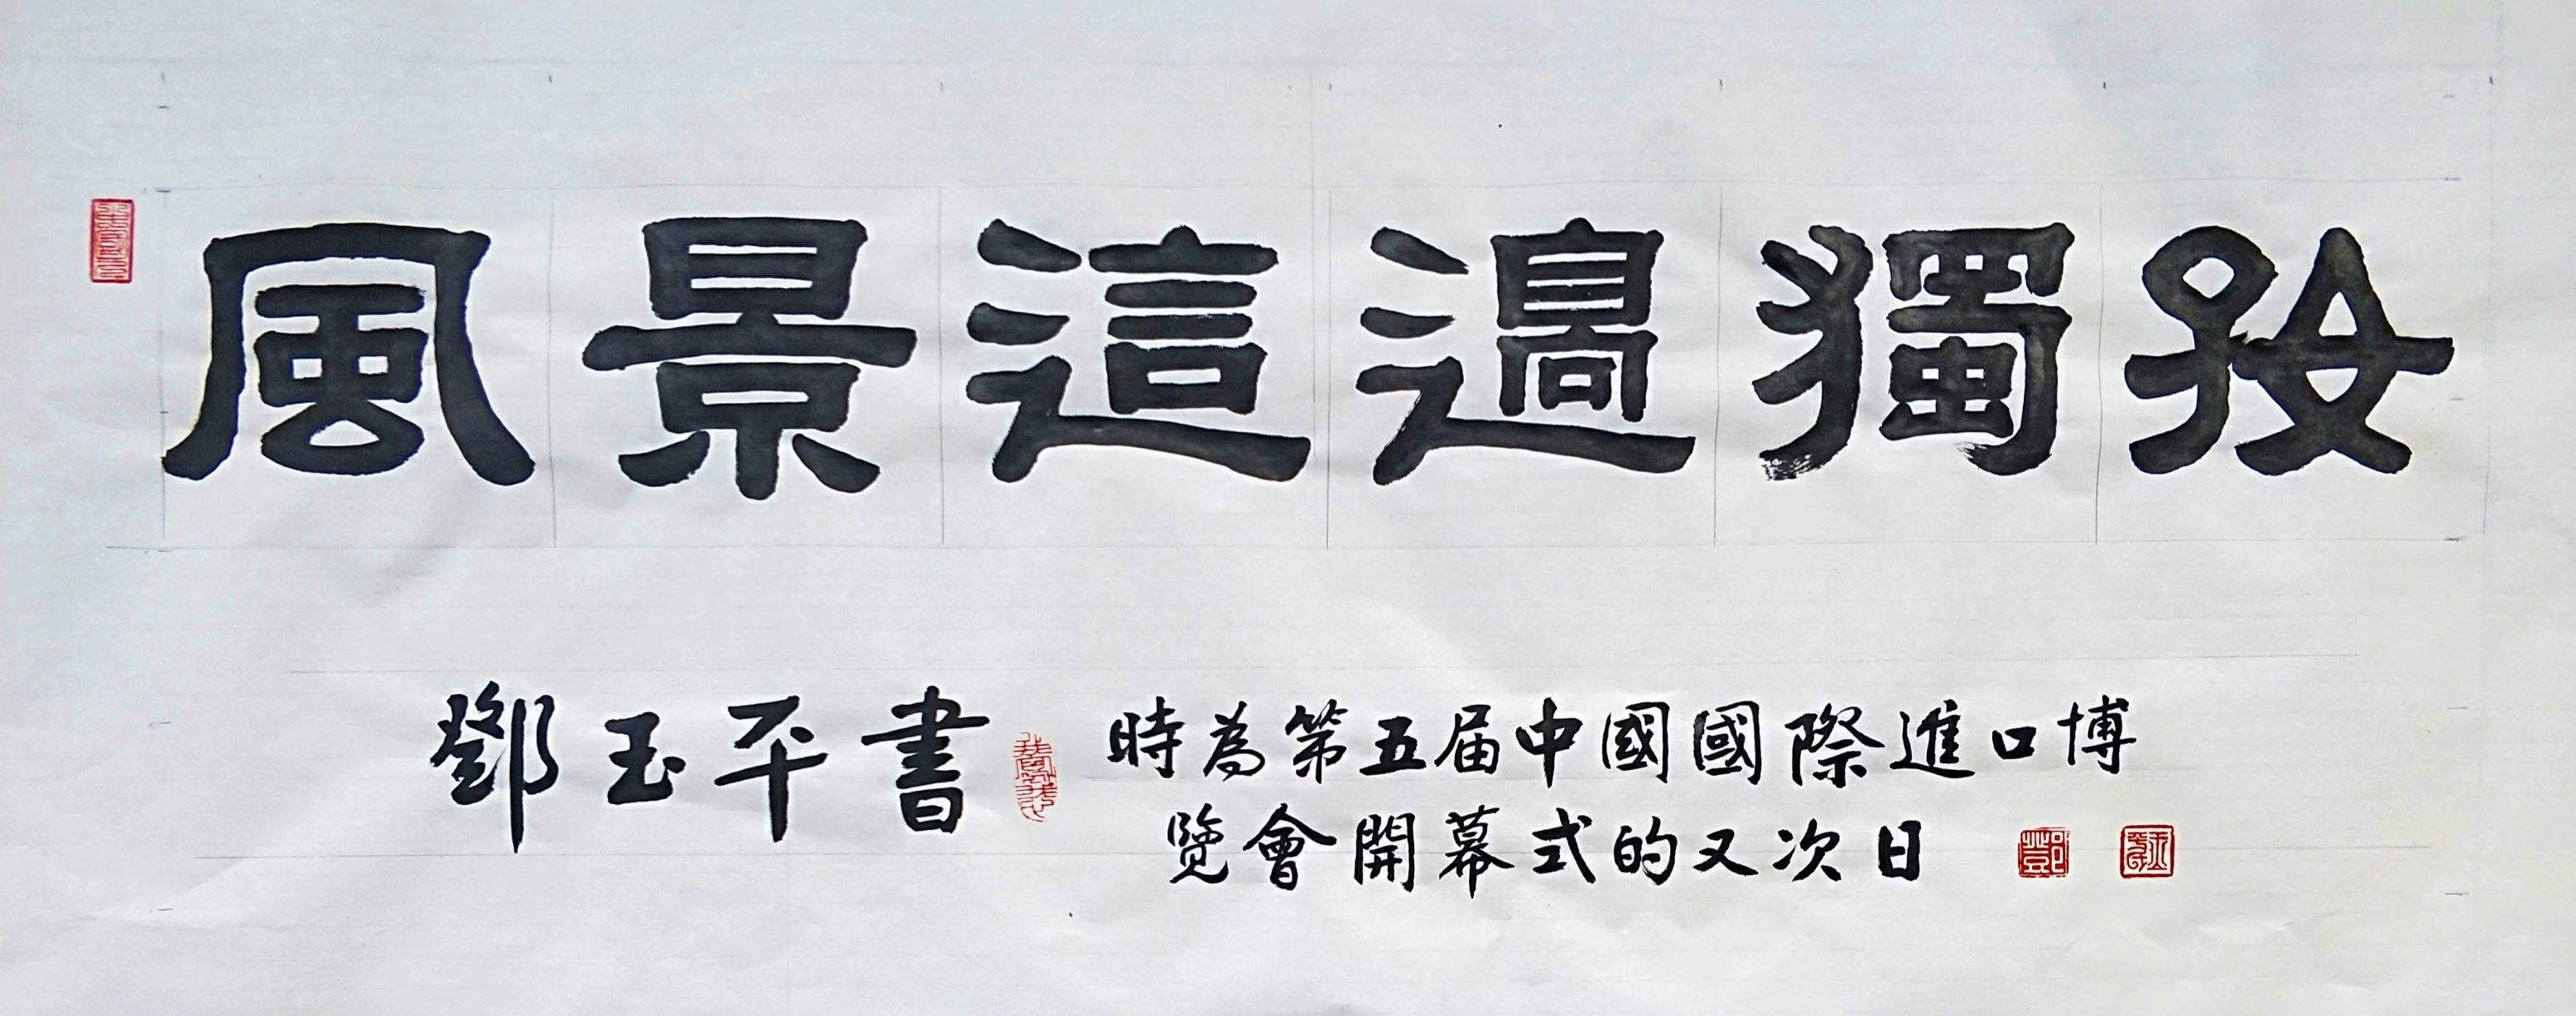 風景這邊獨好
鄧玉平書
時為第五届中國國際進口博
覽會開幕式的又次日